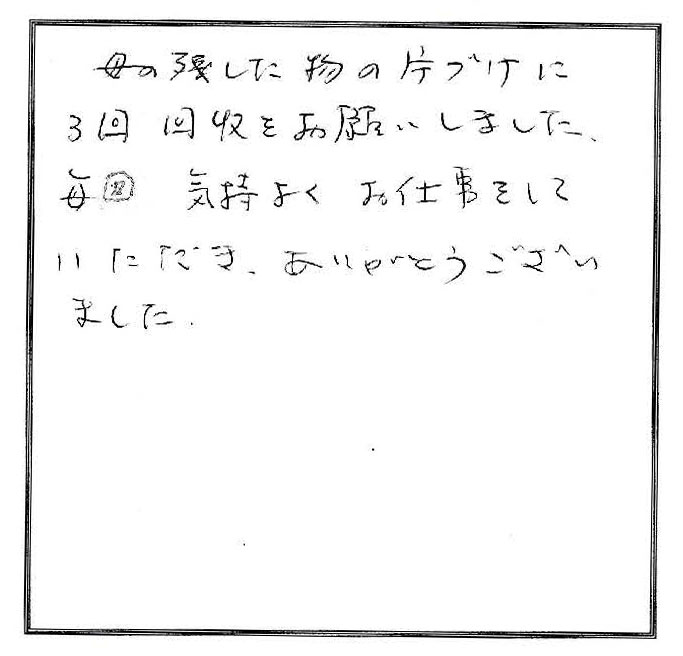 母の残した物の片づけに
3回 回収をお願いしました、
毎回 気持よく お仕事をして
いただき、ありがとうござい
ました.